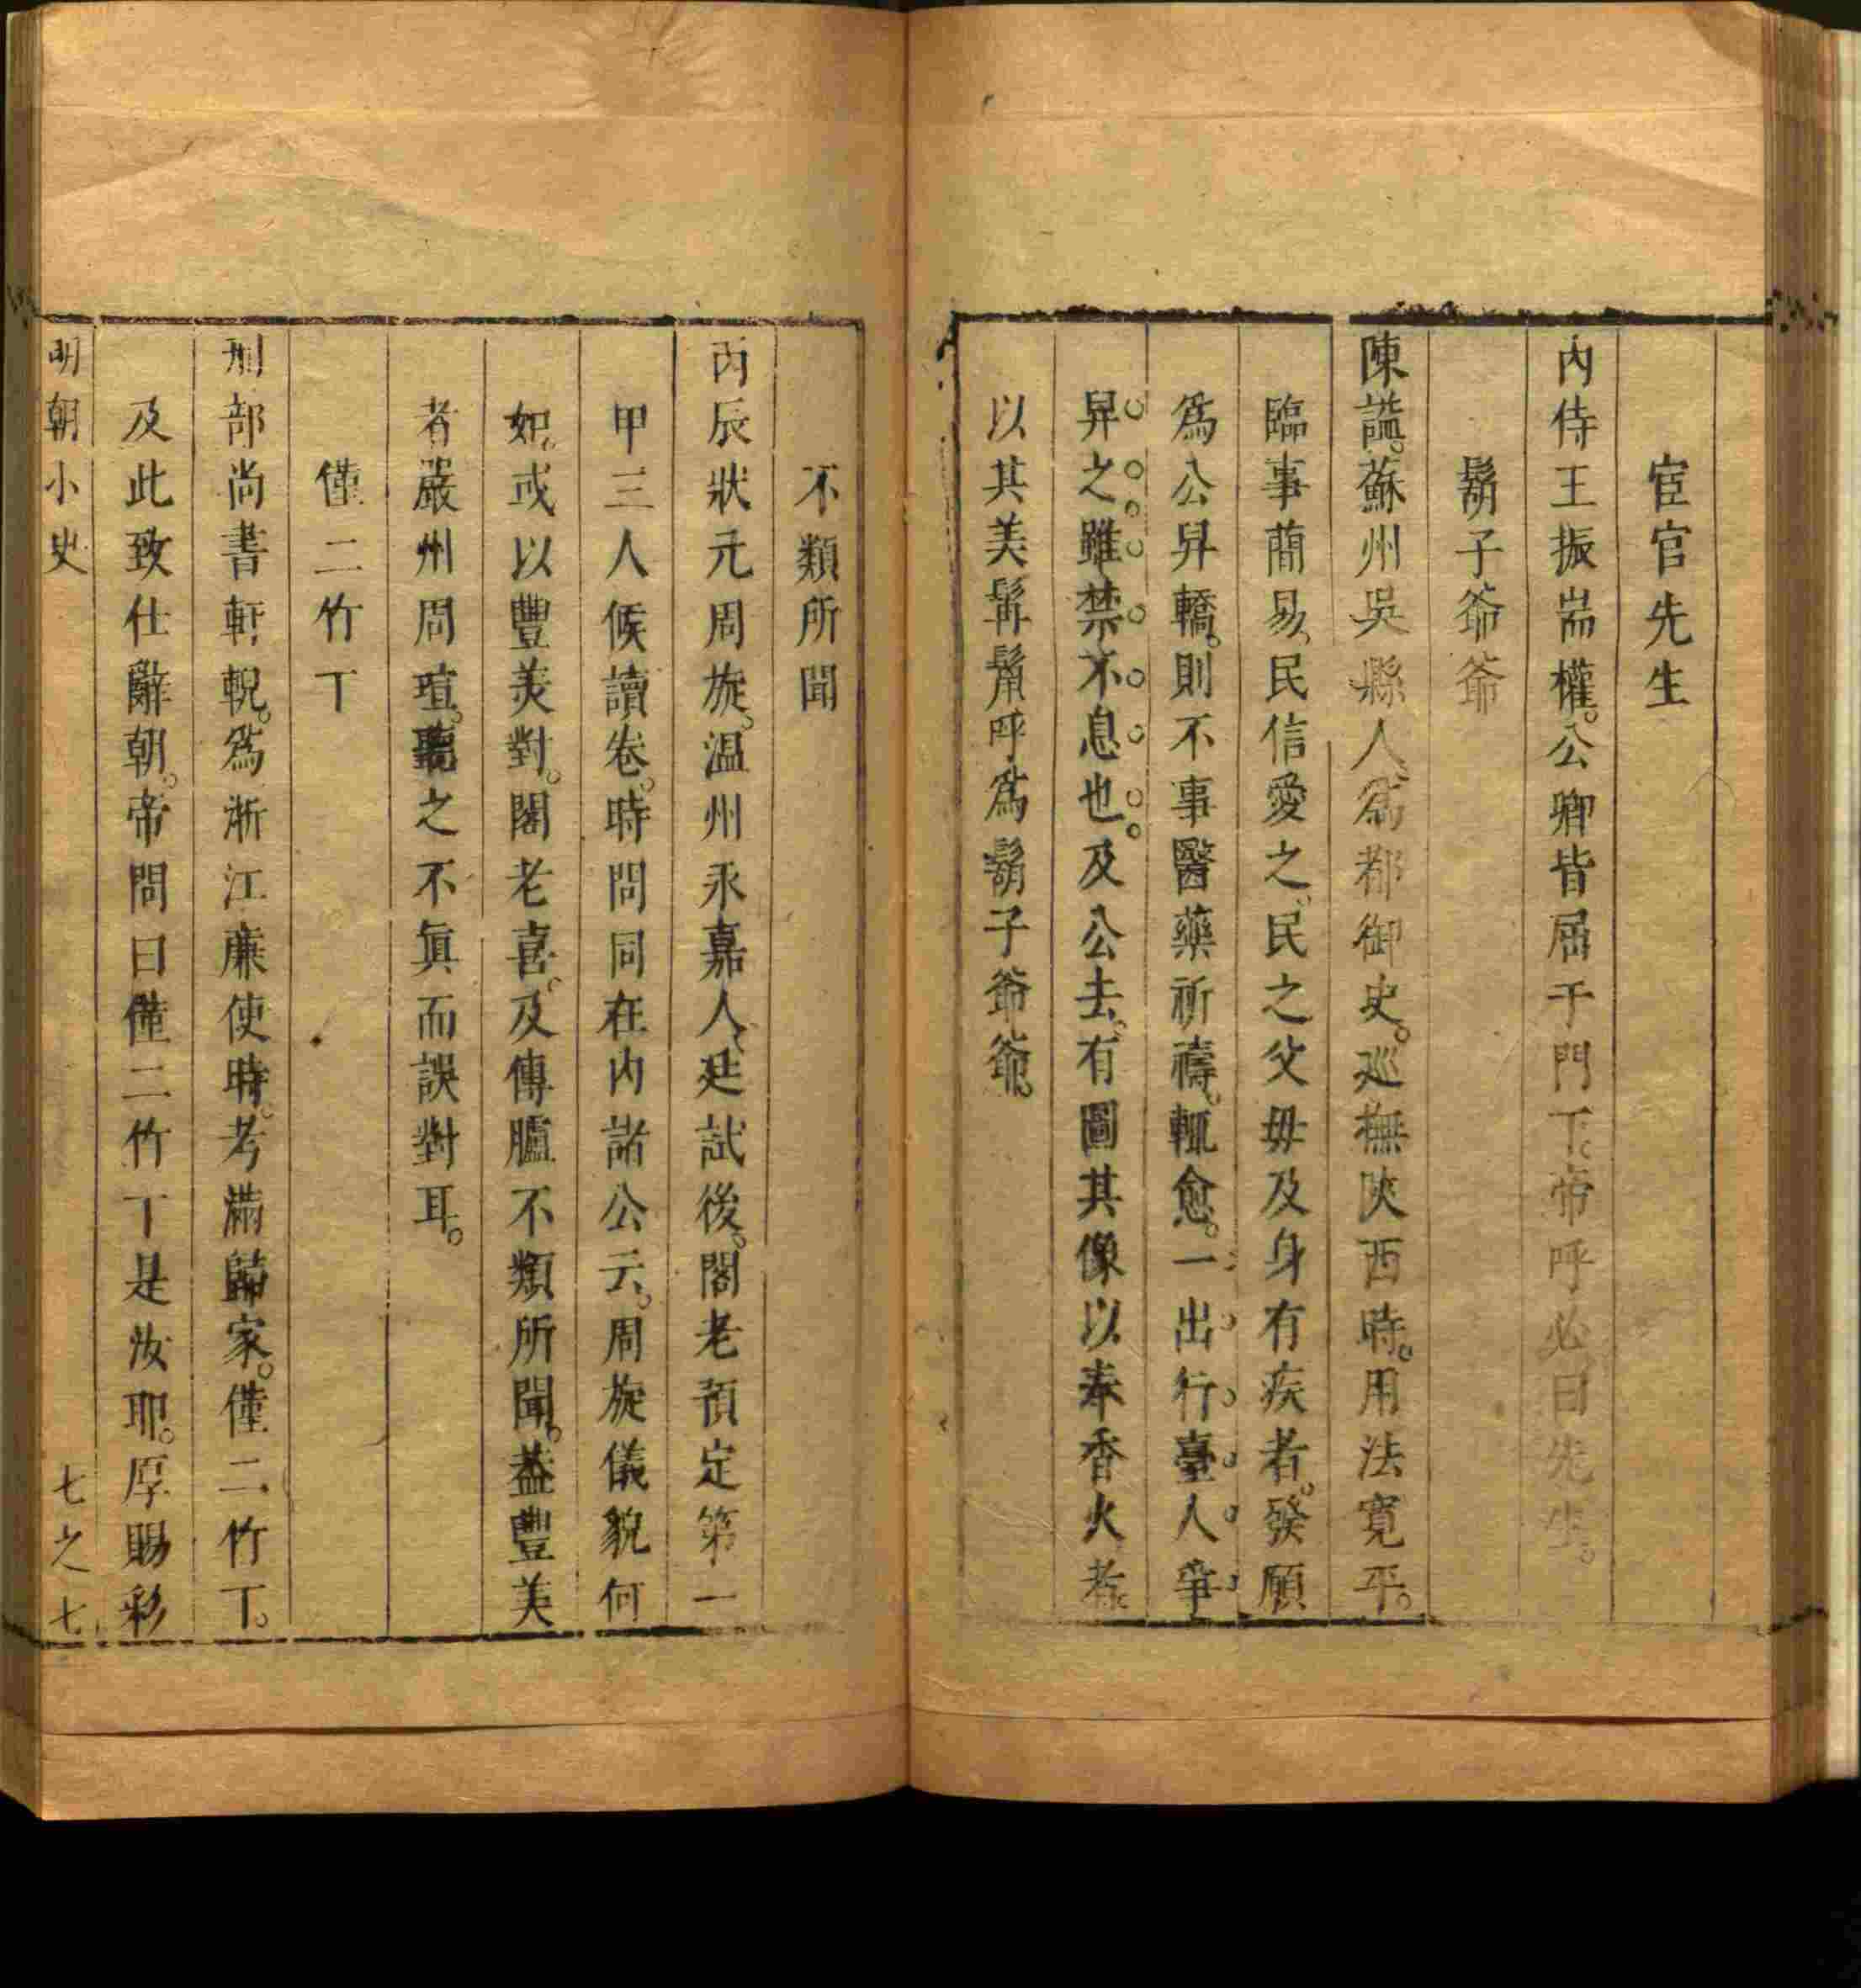 宦官先生
內侍王振耑權。公卿皆屈于門下。帝呼必曰先生。
鬍子爺爺
陳謚。蘇州吳縣人。爲都御史。巡撫陝西時。用法寬平。
臨事蕳易、民信愛之、民之父毋及身有疾者。發願
爲公舁轎。則不事醫藥祈禱。輒愈。一出行臺人爭
舁之。雖禁不息也。及公去。有圖其像以奉香火者。
以其美髯鬚呼爲鬍子爺爺。
不類所聞
丙辰狀元周旋。温州永嘉人、廷試後。閣老預定第一
甲三人候讀卷。時問同在內諸公云。周旋儀貌何
如。或以豐美對。閣老喜。及傳臚不類所聞。葢豐美
者嚴州周瑄。聽之不眞而誤對耳。
僅二竹丁
刑部尚書軒輗。爲浙江廉使時。考滿歸家。僅二竹丁。
及此致仕辭朝。帝問曰僅二竹丁是汝耶。厚賜彩
明朝小史
七之七